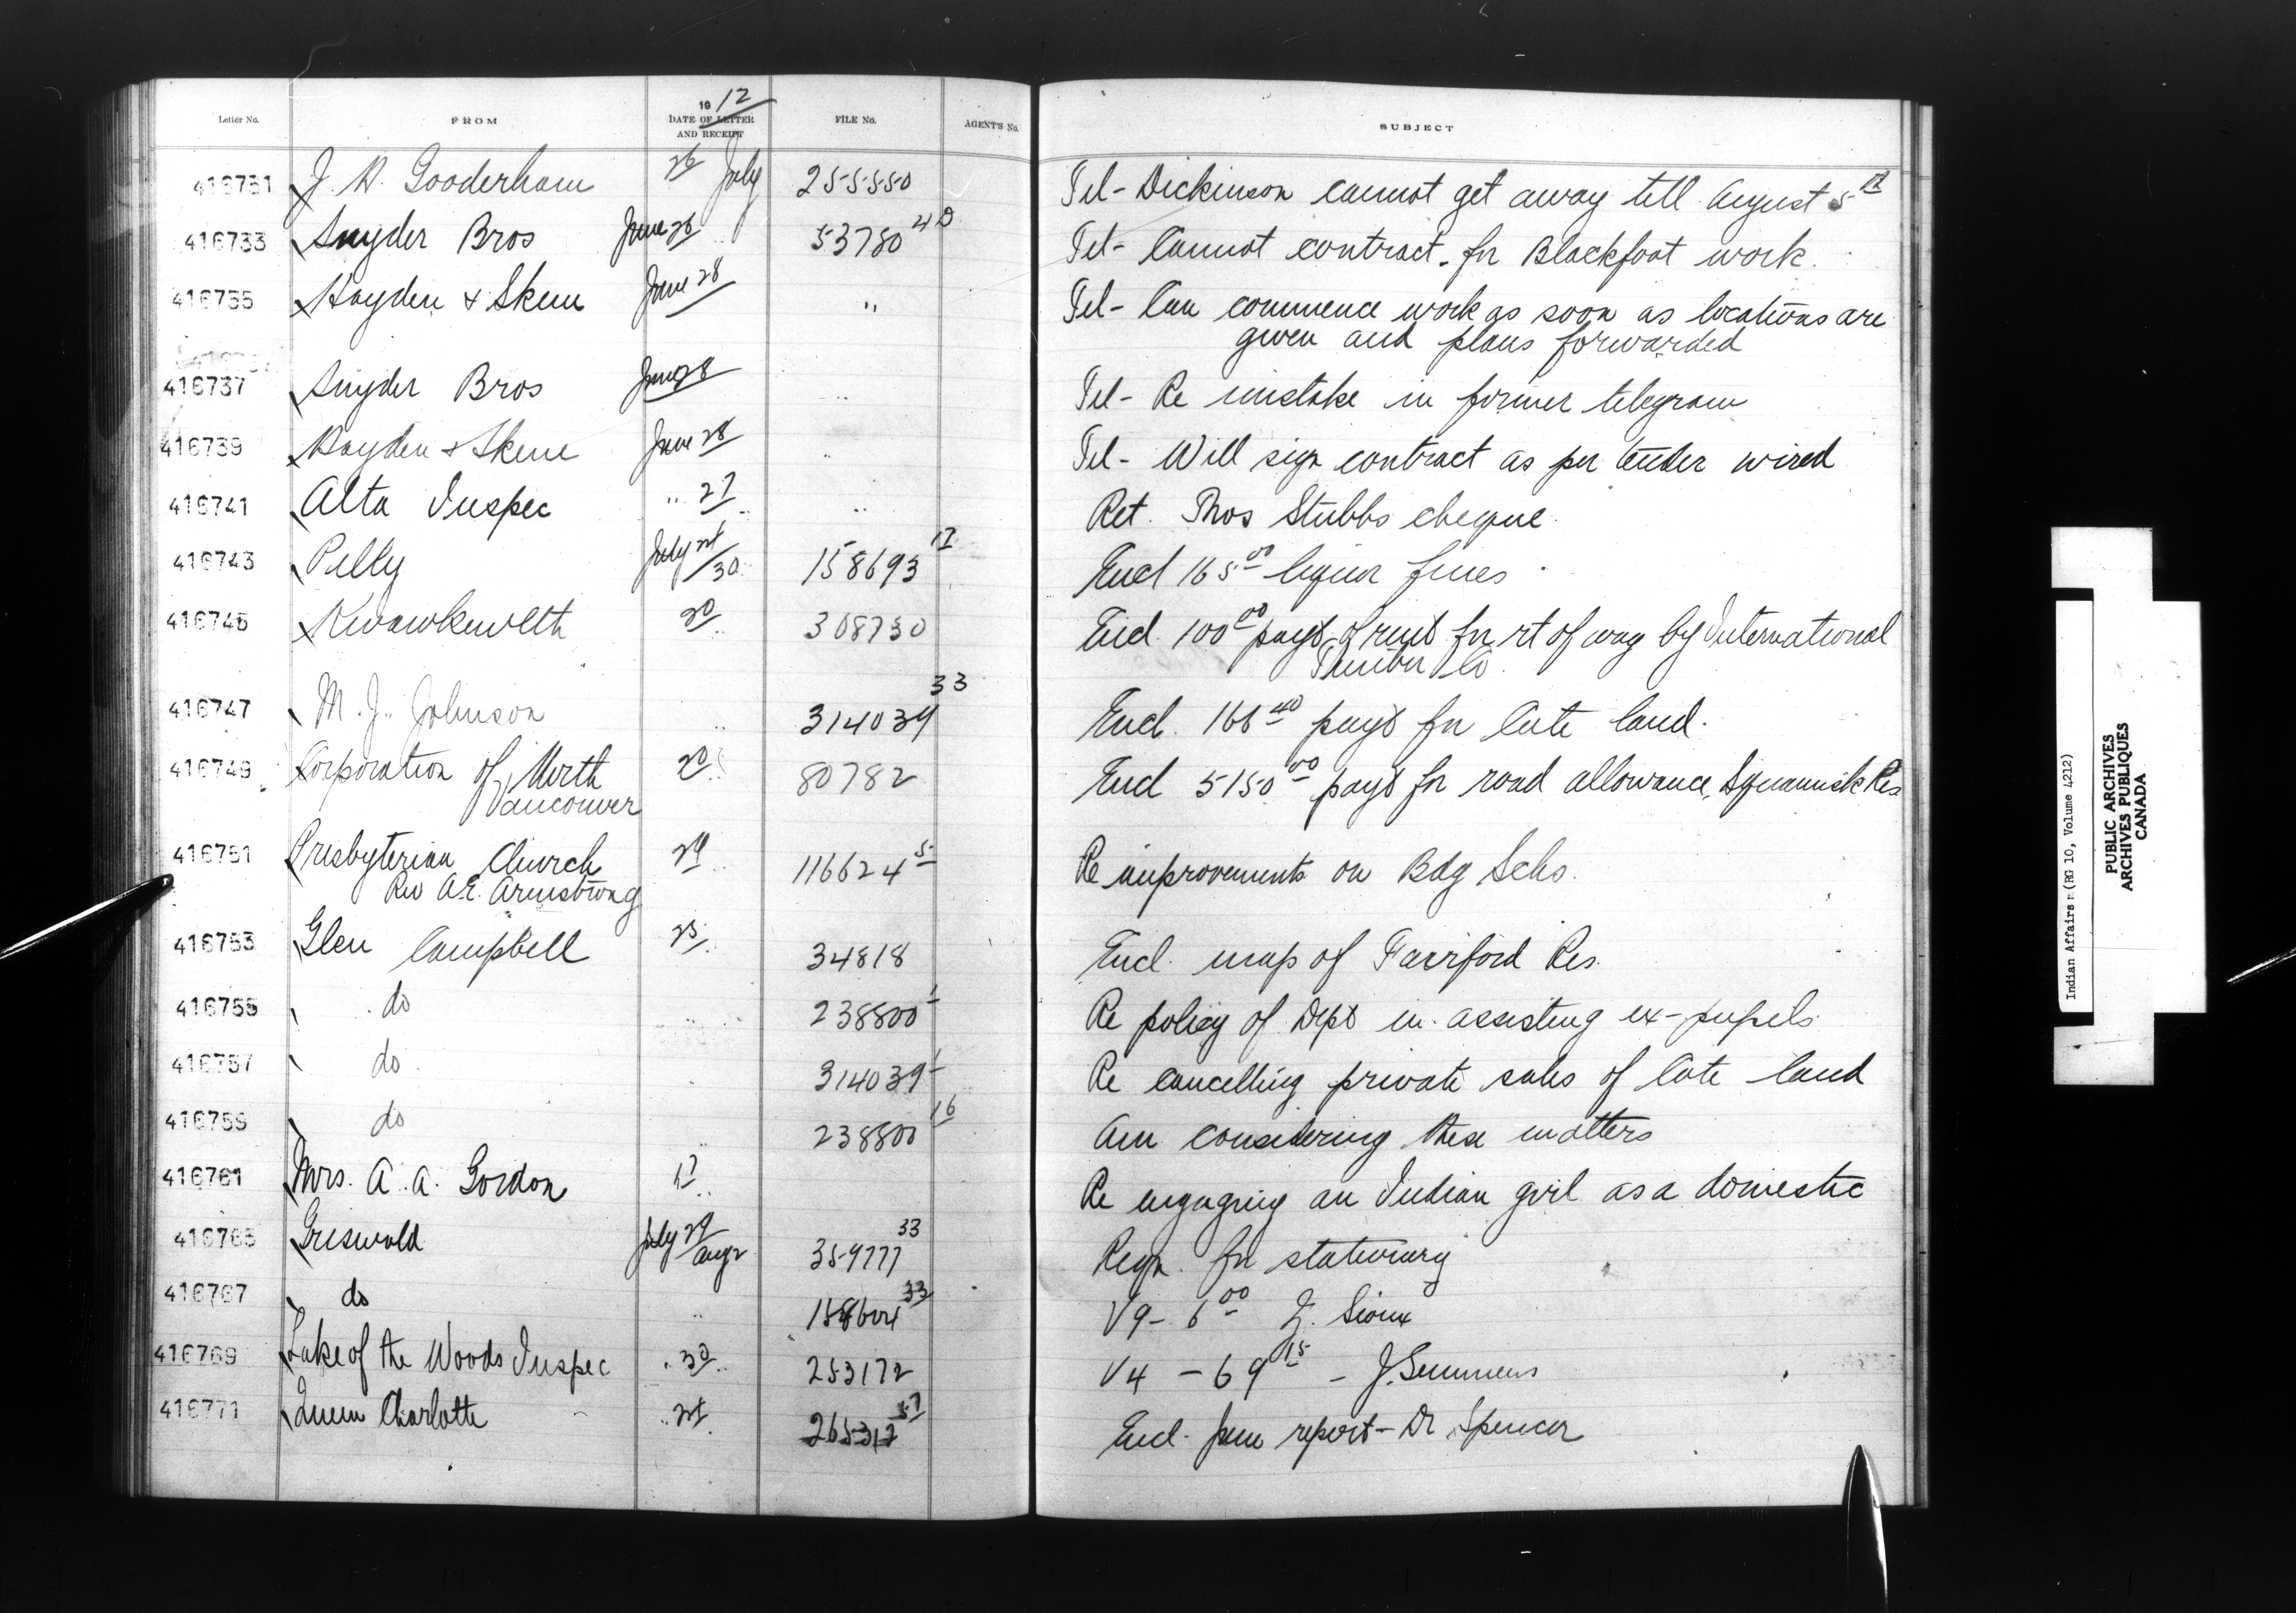 Letter No. FROM 1912 DATE OF LETTER AND RECEIPT FILE No. AGENT'S No. SUBJECT
416731 J. H. Gooderham 26 July 255550 Tel- Dickinson cannot get away till August 5th
416733 Snyder Bros June 26 53780 40 Tel- Cannot contract for Blackfoot work.
416735 Hayden & Skene June 28 " Tel- Can commence work as soon as locations are
given and plans forwarded
416737 Snyder Bros June 28 " Tel- Re mistake in former telegram
416739 Hayden & Skene June 28 " Tel- Will sign contract as per tender wired
416741 Alta Inspec " 27 " Ret. Thos Stubbs cheque
416743 Pelly July 30 158693 Encl 165 00 liquor fines
416745 Kwawkewlth 20 308730 Encl. 100 00 payt of rent for rt of way by International
Timber Co
416747 M. J. Johnson " 314039 33 Encl. 166 40 payt for Cote land.
416749 Corporation of North 20 80782 Encl 5150 00 payt for road allowance, Squamish Res
Vancouver
416751 Presbyterian Church 29 116624 5 Re improvements on Bdg Schs.
Rev A.E. Armstrong
416753 Glen Campbell 25 34818 Encl. map of Fairford Res.
416755 do 238800 1 Re policy of Dept in assisting ex-pupils
416757 do 314039 1 Re cancelling private sales of Cote land
416759 do " 238800 16 Am considering these matters
416761 Mrs. A. A. Gordon 17 Re engaging an Indian girl as a domestic
416765 Griswold July 29 Aug 2 359777 33 Reqn. for stationery
416767 do " 33 V9- 6 00 Sioux
416769 Lake of the Woods Inspec " 30 253172 V4 - 69 15 - J. Semmens
416771 Queen Charlotte 265312 57 Encl. June report - Dr Spencer
Indian Affairs (RG 10, Volume 4212)
PUBLIC ARCHIVES
ARCHIVES PUBLIQUES
CANADA